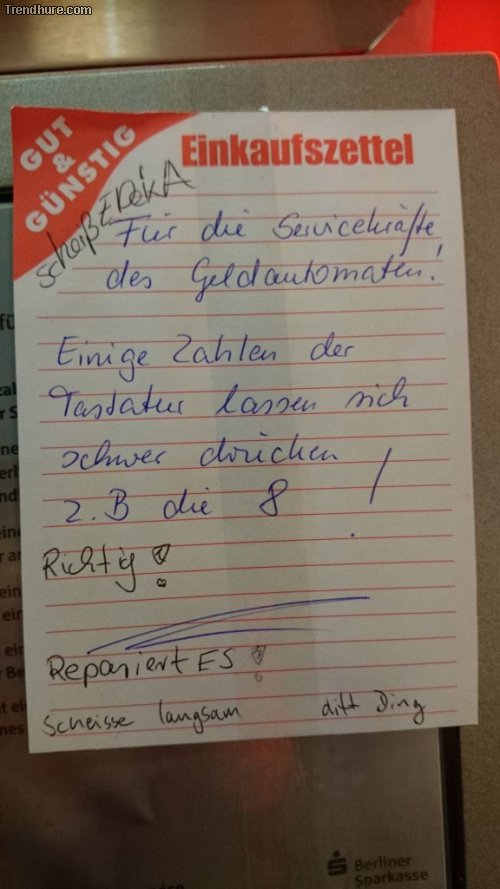 Trendhure.com
GUT
&
GÜNSTIG
Einkaufszettel
scheiß EDEKA
Für die Servicekräfte
des Geldautomaten!
Einige Zahlen der
Tastatur lassen sich
schwer drücken
z.B die 8 !
Richtig!
Repariert ES!
Scheisse langsam ditt Ding
Berliner
Sparkasse